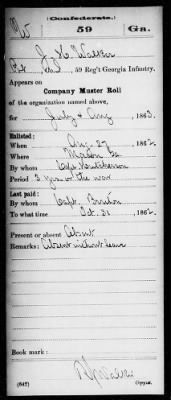 (Confederate.)
W 59 Ga.
J. H. Walker
Pvt, Co. , 59 Reg't Georgia Infantry.
Appears on
Company Muster Roll
of the organization named above,
for July & Aug, 1863.
Enlisted:
When Aug. 27, 1862.
Where Macon Ga
By whom Capt.
Period 3 yrs or the war
Last paid:
By whom Capt.
To what time Oct. 31, 1862.
Present or absent Absent
Remarks: Absent without leave
Book mark:
(642)
Walker
Copyist.